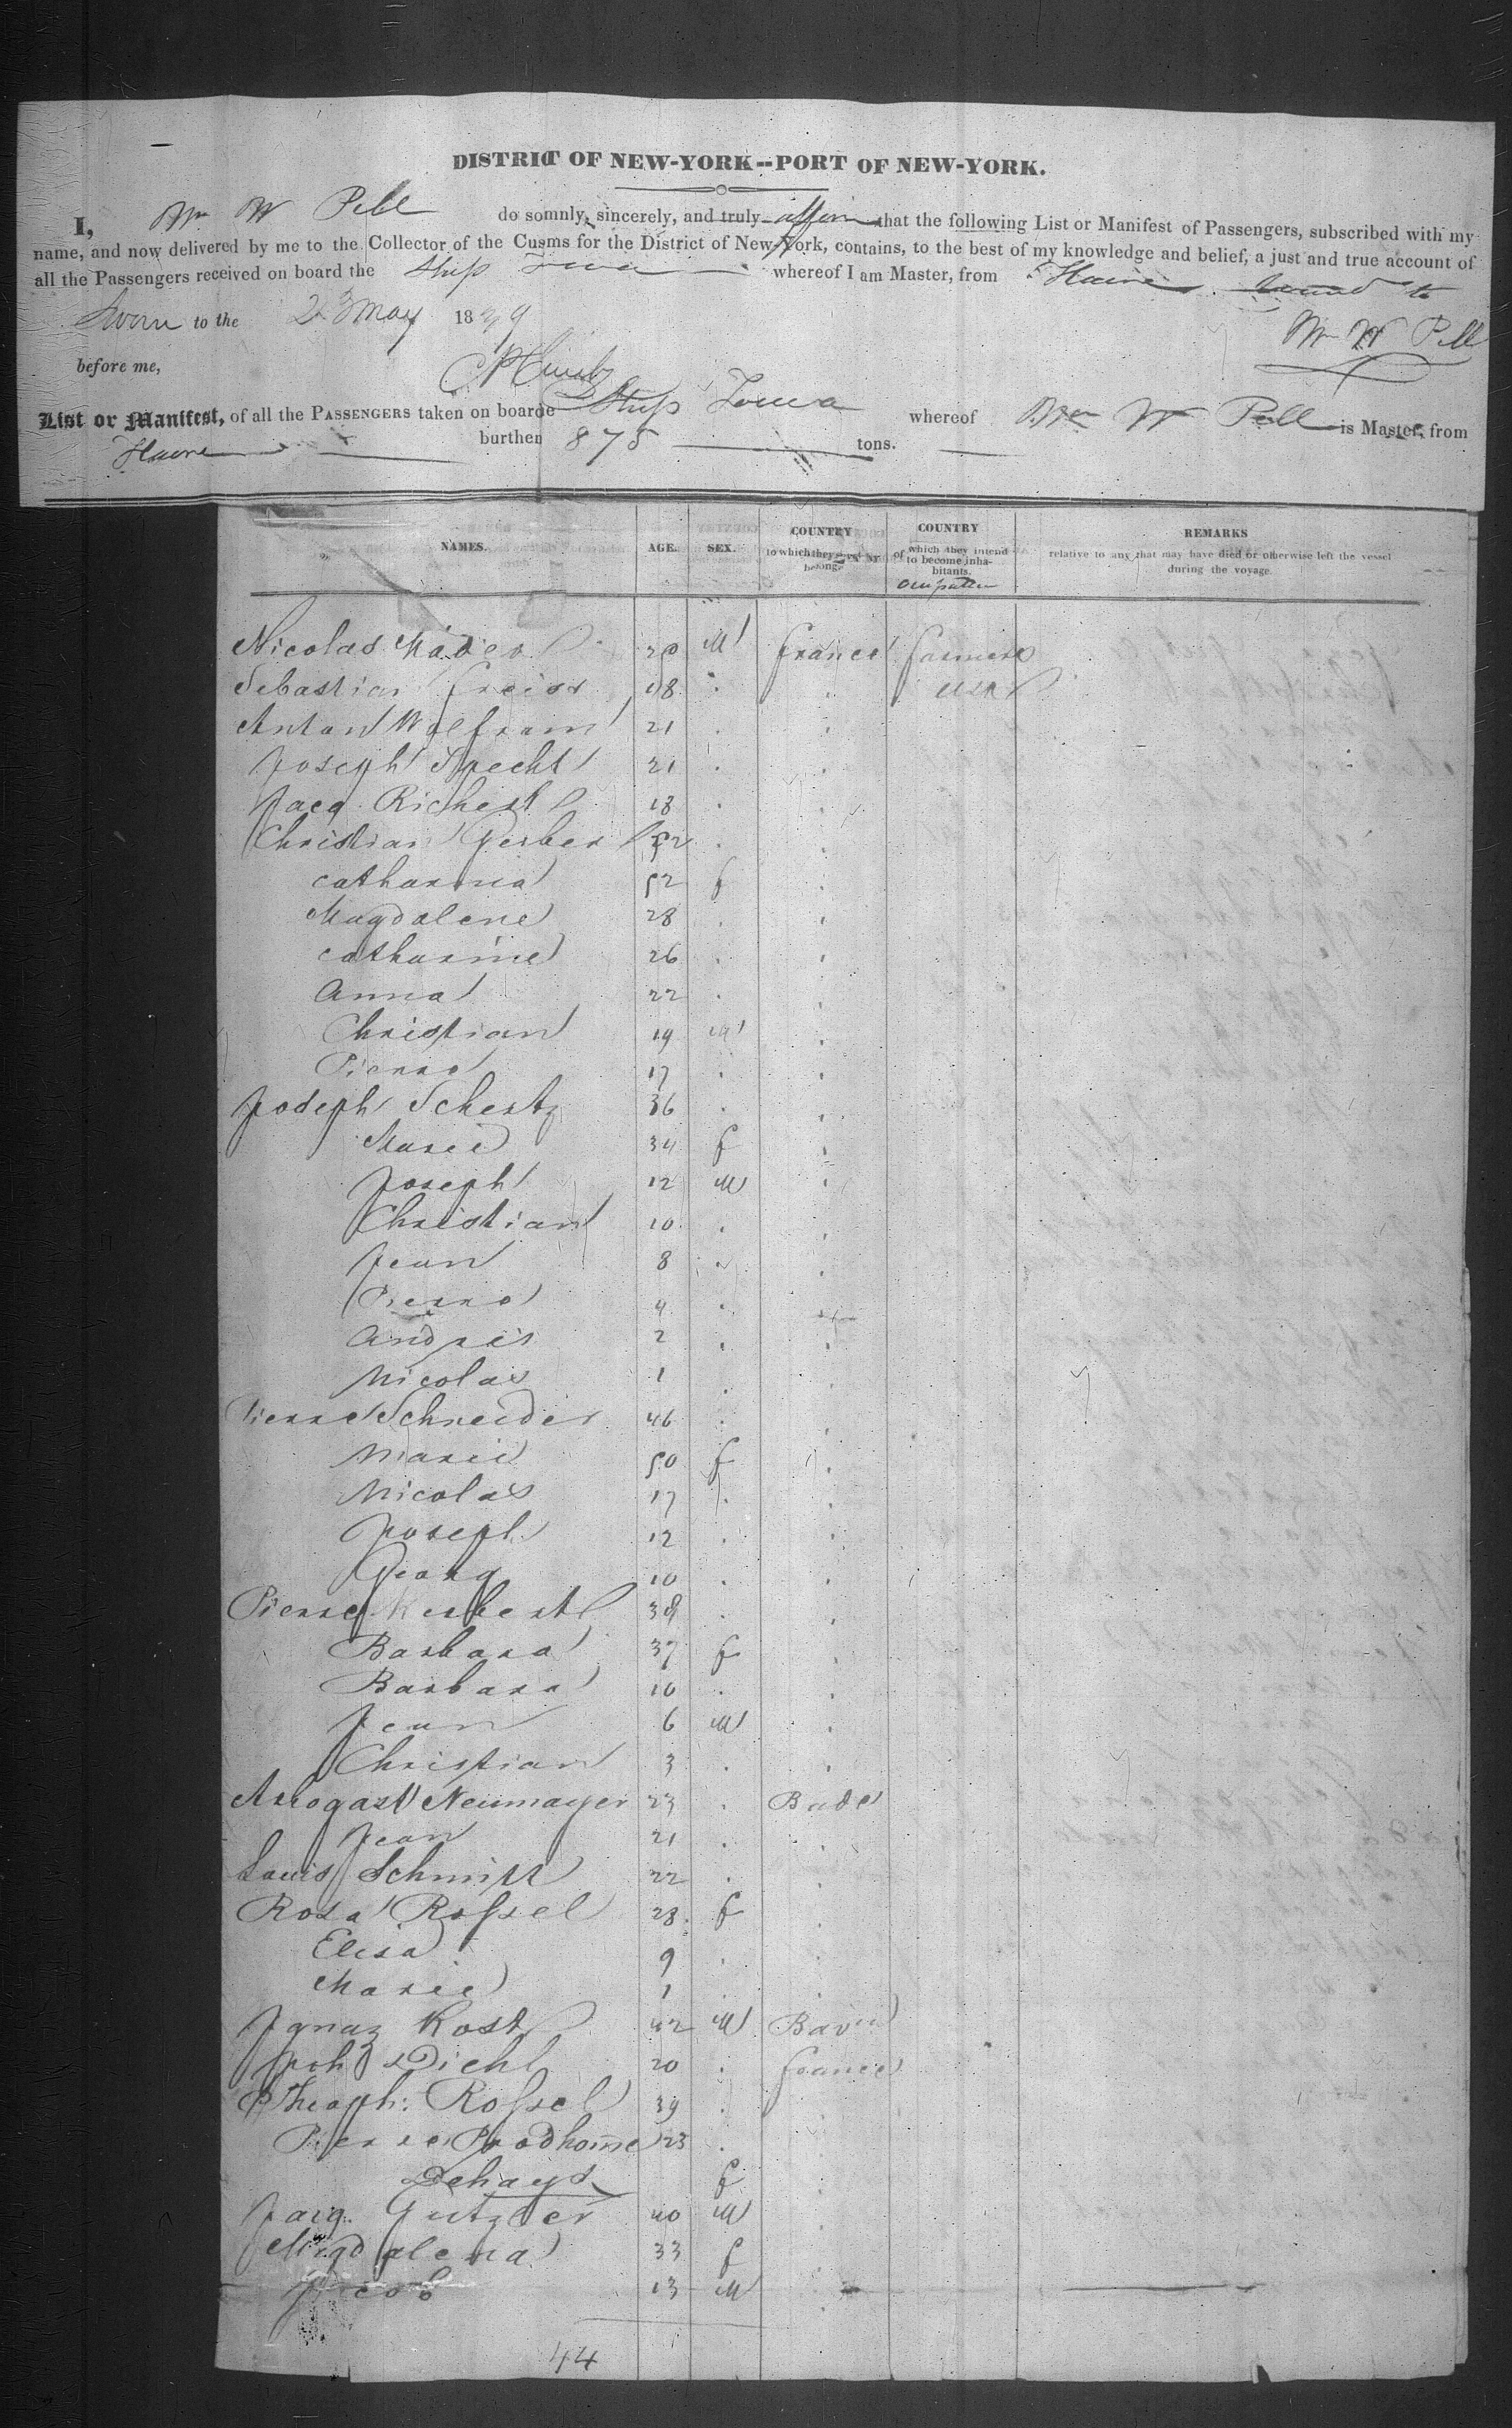 DISTRICT OF NEW-YORK--PORT OF NEW-YORK.
I, Wm W Pell do somnly, sincerely, and truly affirm that the following List or Manifest of Passengers, subscribed with my
name, and now delivered by me to the Collector of the Cusms for the District of New-York, contains, to the best of my knowledge and belief, a just and true account of
all the Passengers received on board the Ship Iowa whereof I am Master, from Havre bound to
Sworn to the 23 May 1839
Wm W Pell
before me,
List or Manifest, of all the PASSENGERS taken on board Ship Iowa whereof Wm W Pell is Master, from
Havre burthen 875 tons.
NAMES. AGE. SEX. COUNTRY to which they belong. COUNTRY of which they intend to become inhabitants. REMARKS relative to any that may have died or otherwise left the vessel during the voyage.
occupation
Nicolas 20 M france farmers
Sebastian 18 " " USA
Anton Wolfram 21 " "
Joseph Specht 21 " "
Jacq Richert 18 " "
Christian Gerber 52 " "
catharina 52 f "
Magdalene 28 " "
catharine 26 " "
Anna 22 " "
Christian 19 M "
Pierre 17 " "
Joseph Schertz 36 " "
Marie 34 f "
Joseph 12 M "
Christian 10 " "
Jean 8 " "
Pierre 4 " "
Andreis 2 " "
Nicolas 1 " "
Pierre Schneider 46 " "
Marie 50 f "
Nicolas 17 " "
Joseph 12 " "
Georg 10 " "
Pierre 38 " "
Barbara 37 f "
Barbara 10 " "
Jean 6 M "
Christian 3 " "
Arbogast Neumayer 23 " Bade
Jean 21 " "
Louis Schmitt 22 " "
Rosa Rossel 28 f "
Elisa 9 " "
Marie 1 " "
Ignaz Kost 42 M Bavie
Joh Diehl 20 " france
Theoph: Rossel 39 " "
Pierre Prodhome 23 " "
Dehays f "
Jacq. Gutzler 40 M "
Magdalena 33 f "
Jacob 13 M "
44